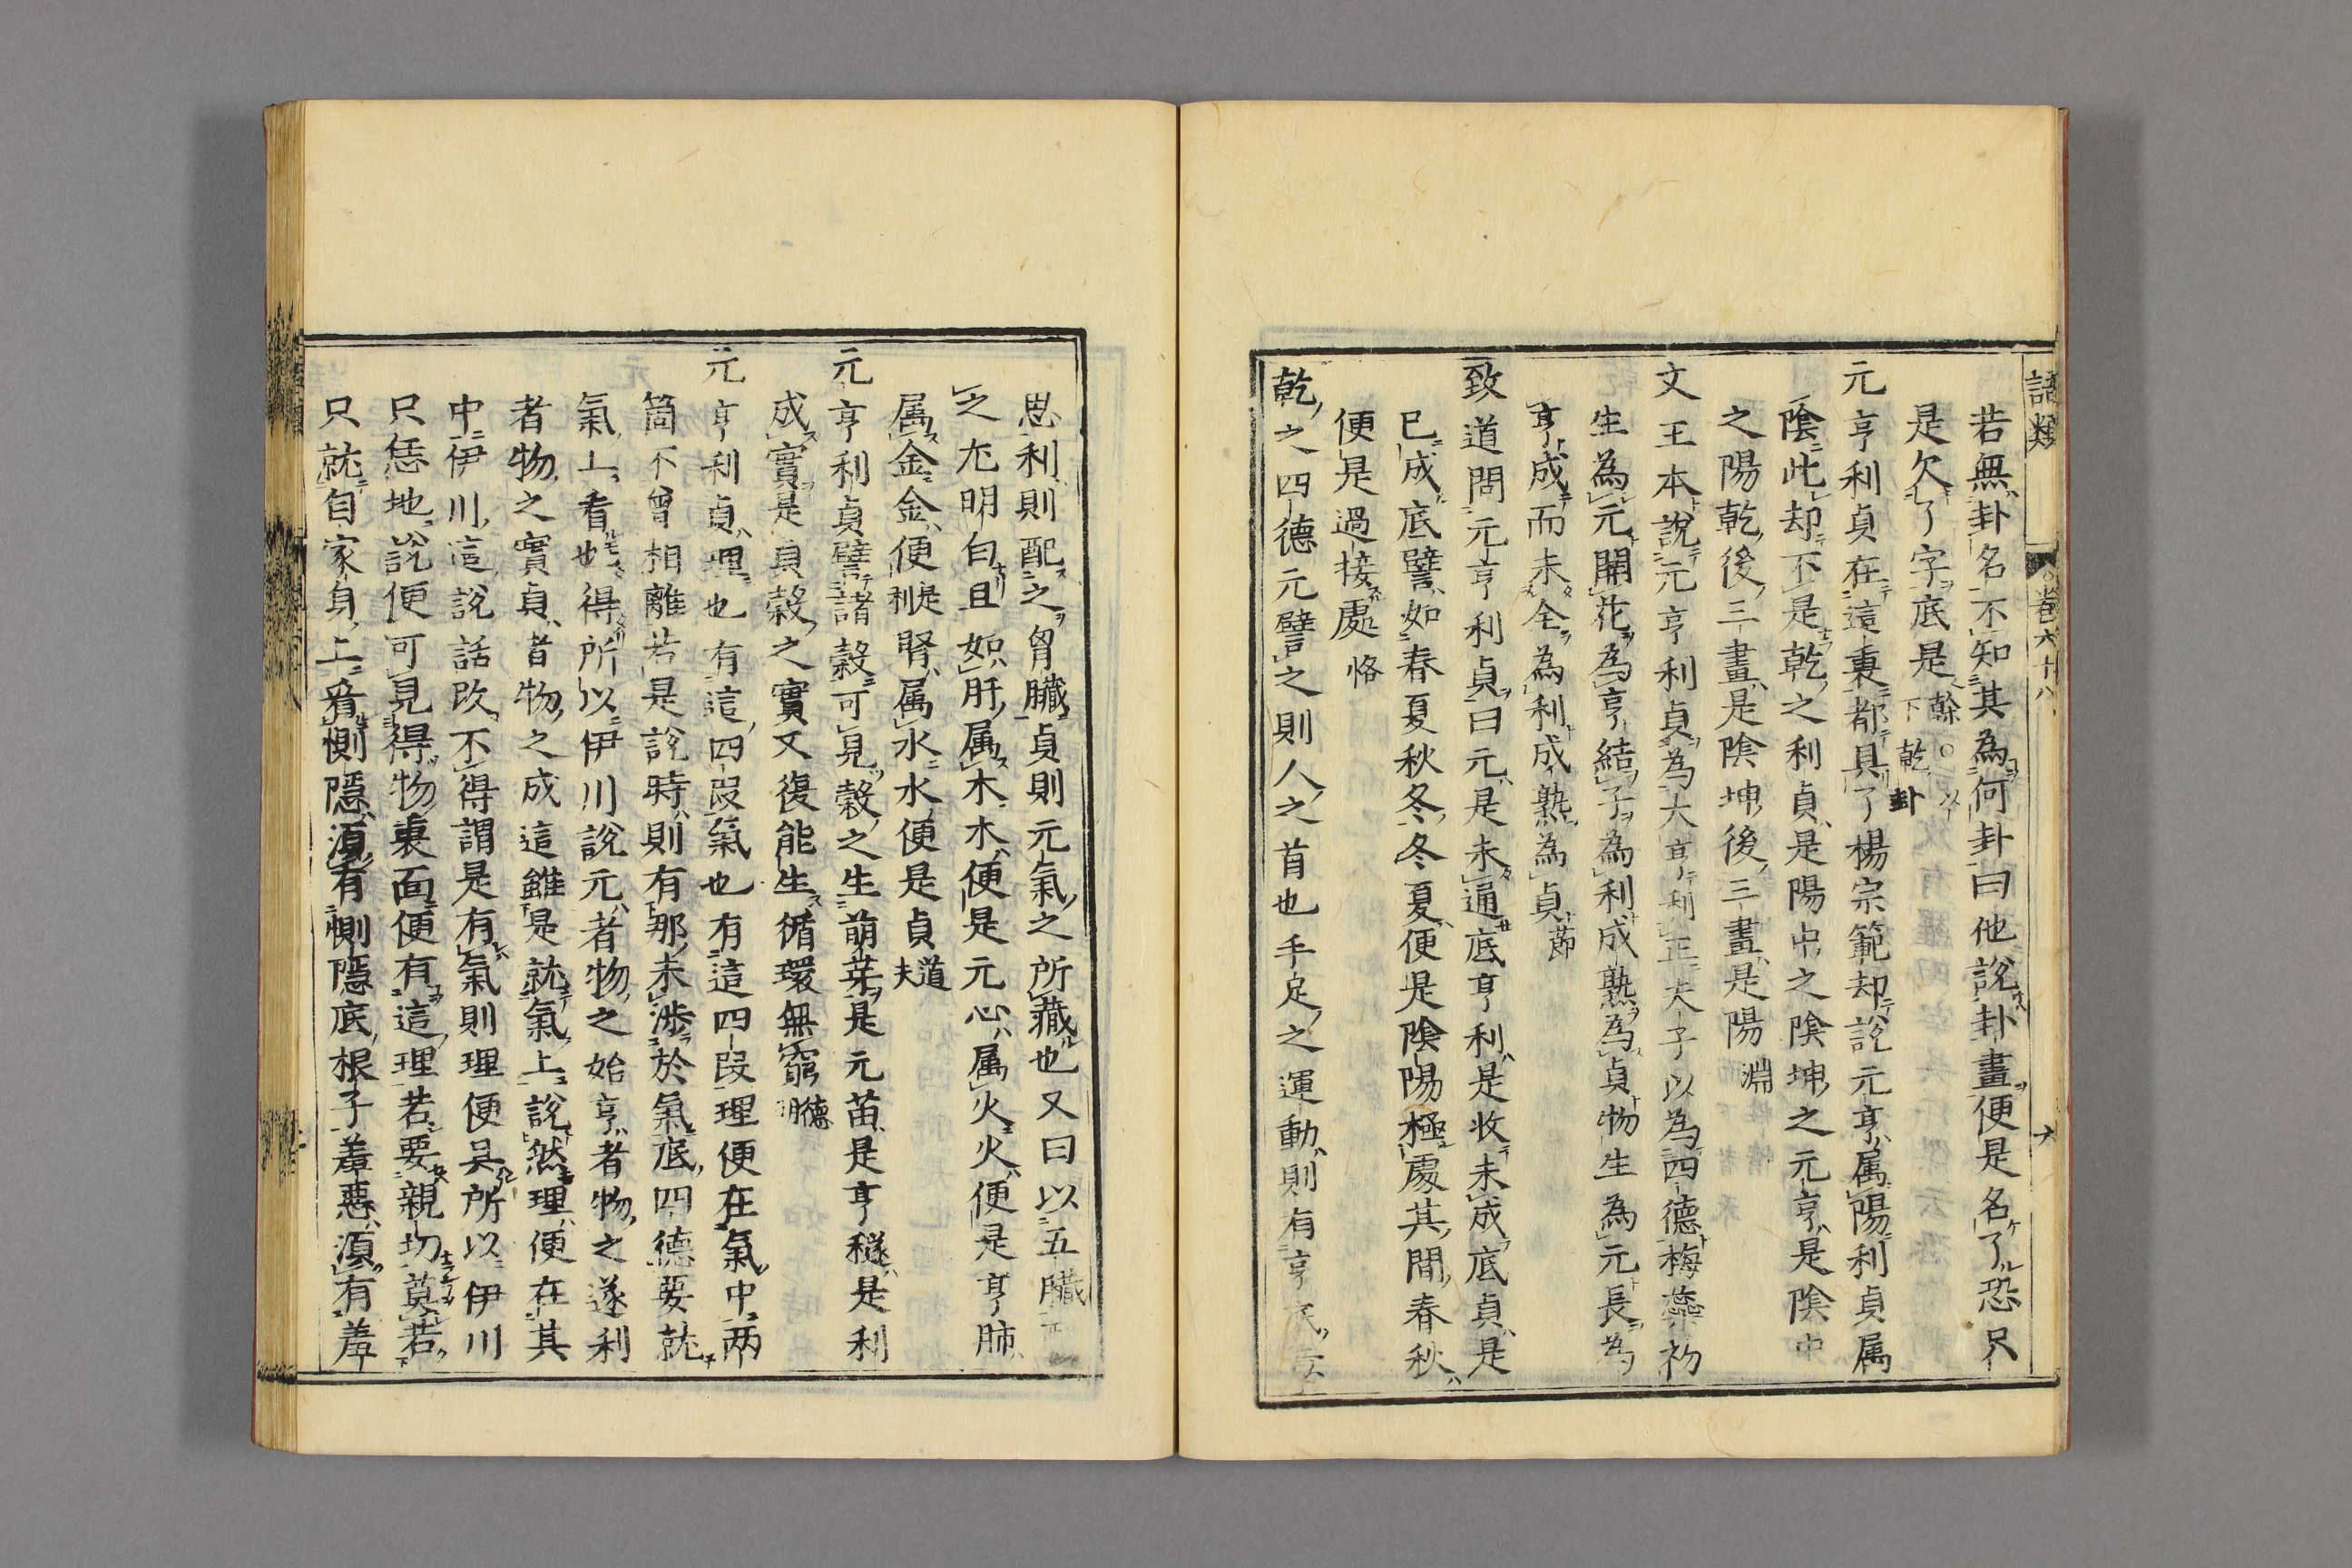 語類 卷六十八 六
若無卦名不知其為何卦曰他說卦畫便是名了恐只
是欠了字底是 榦○乾卦下
元亨利貞在這裏都具了楊宗範却說元亨属陽利貞属
陰此却不是乾之利貞是陽中之陰坤之元亨是陰中
之陽乾後三畫是陰坤後三畫是陽 淵
文王本說元亨利貞為大亨利正夫子以為四德梅蘂初
生為元開花為亨結子為利成熟為貞物生為元長為
亨成而未全為利成熟為貞 節
致道問元亨利貞曰元是未通底亨利是收未成底貞是
已成底譬如春夏秋冬冬夏便是陰陽極處其間春秋
便是過接處 恪
乾之四德元譬之則人之首也手足之運動則有亨底
思利則配之胷臟貞則元氣之所藏也又曰以五臟
之尤明白且如肝属木木便是元心属火火便是亨肺
属金金便是利腎属水水便是貞 道夫
元亨利貞譬諸穀可見穀之生萌芽是元苗是亨穟是利
成實是貞穀之實又復能生循環無窮 德明
元亨利貞理也有這四段氣也有這四段理便在氣中兩
箇不曾相離若是說時則有那未涉於氣底四德要就
氣上看也得所以伊川說元者物之始亨者物之遂利
者物之實貞者物之成這雖是就氣上說然理便在其
中伊川這說話改不得謂是有氣則理便具所以伊川
只恁地說便可見得物裏面便有這理若要親切莫若
只就自家身上看惻隱須有惻隱底根子羞惡須有羞